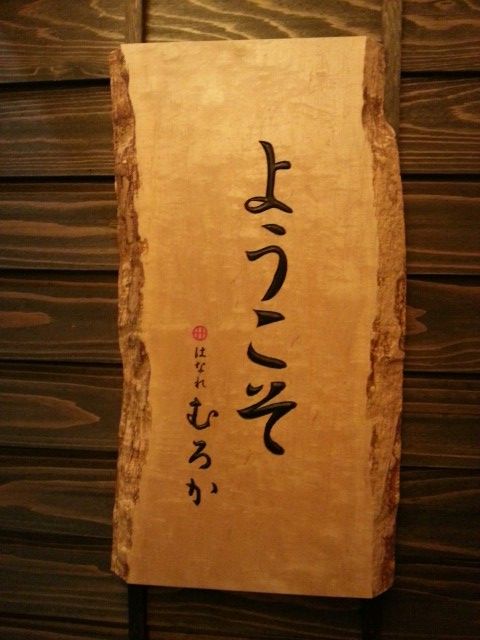 ようこそ
はなれ むろか